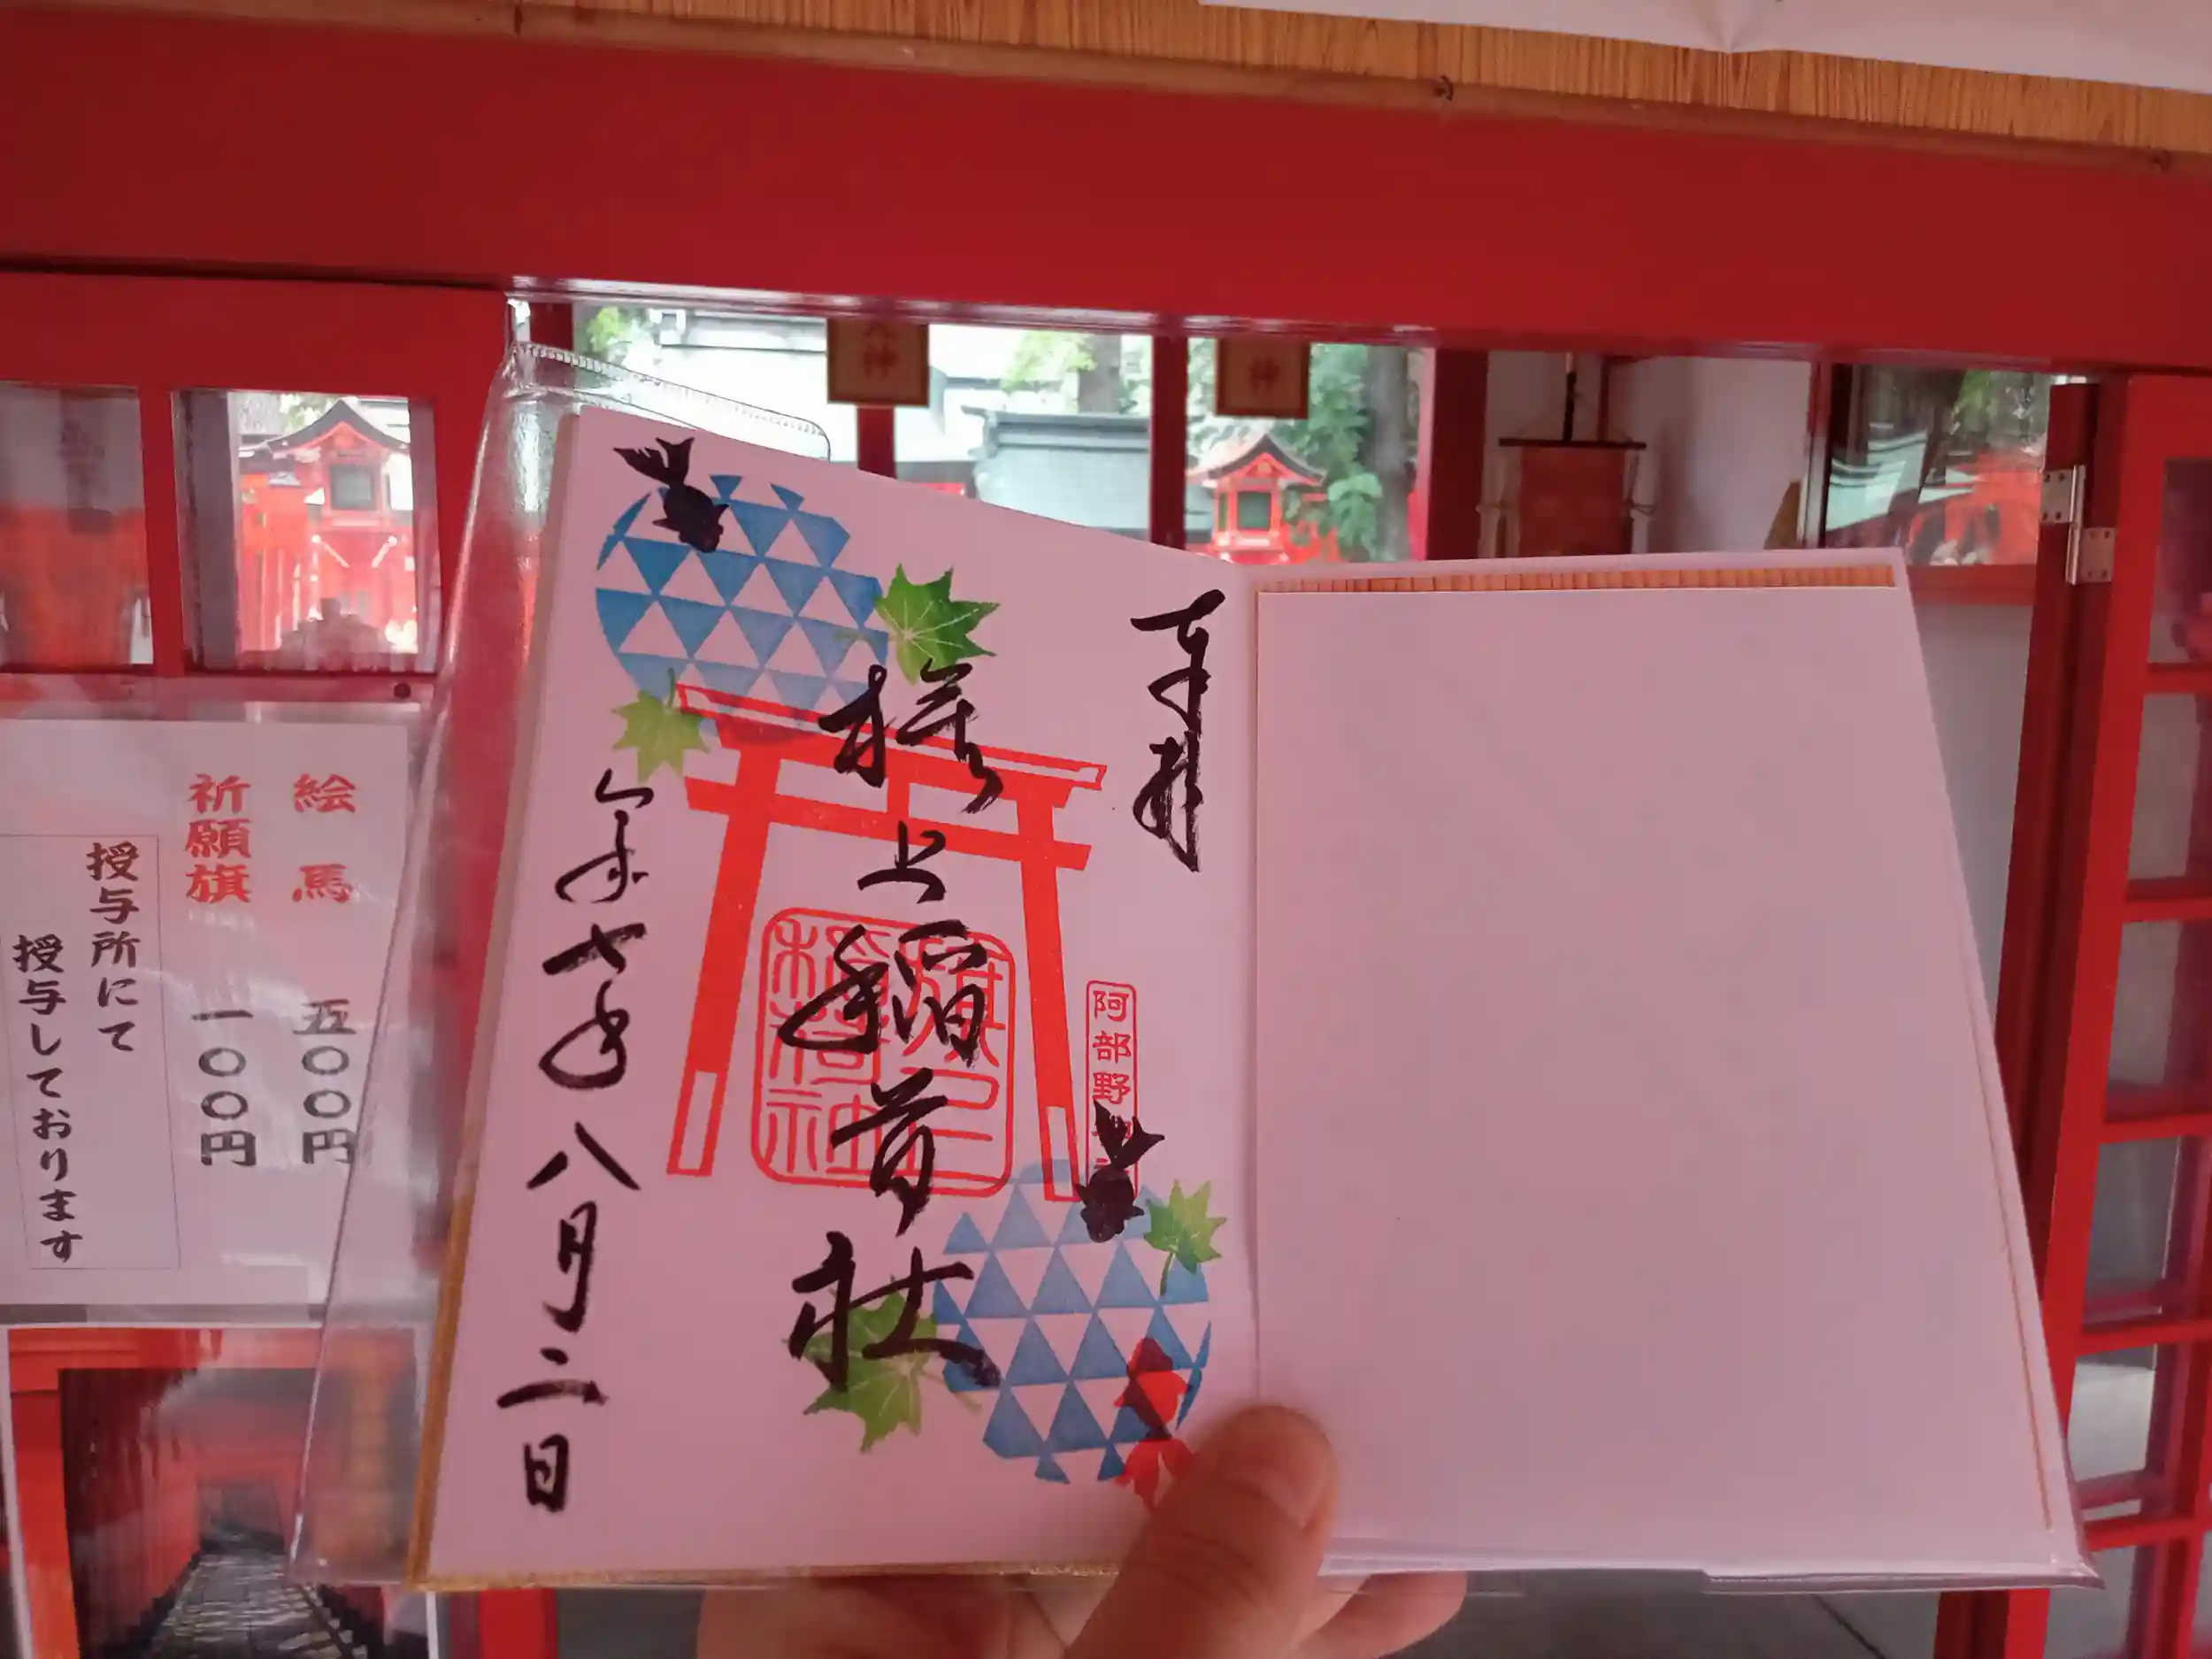 奉拝
旗上稲荷社
令和七年八月二日
旗上
稲荷社
阿部野
絵馬 五〇〇円
祈願旗 一〇〇円
授与所にて
授与しております
大神
神